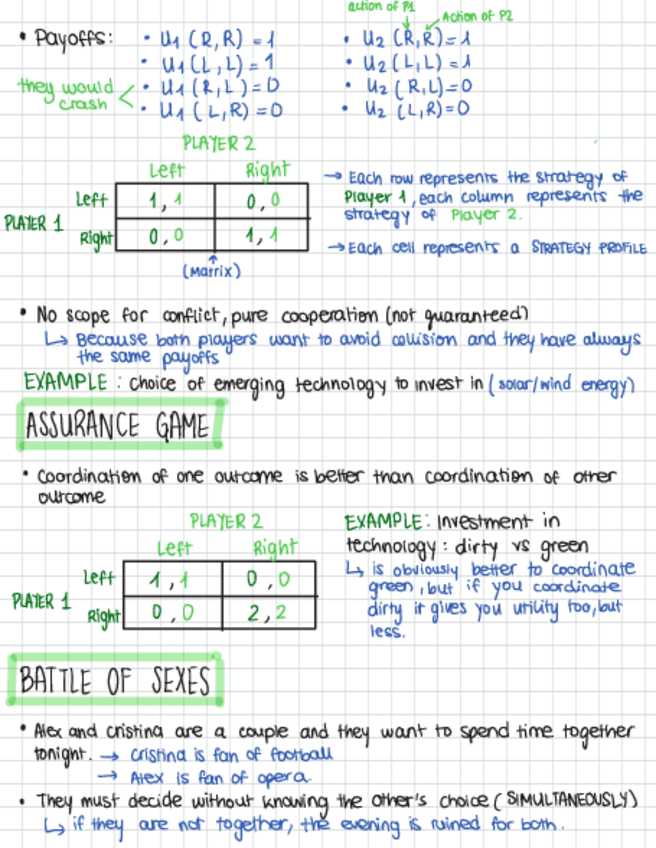 action of P1
Action of P2
• Payoffs: • U1 (R,R) = 1 • U2 (R,R) = 1
• U1 (L,L) = 1 • U2 (L,L) = 1
they would crash < • U1 (R,L) = 0 • U2 (R,L) = 0
• U1 (L,R) = 0 • U2 (L,R) = 0
PLAYER 2
Left Right
PLAYER 1
Left 1,1 0,0
Right 0,0 1,1
(Matrix)
→ Each row represents the strategy of
Player 1, each column represents the
strategy of Player 2.
→ Each cell represents a STRATEGY PROFILE
• No scope for conflict, pure cooperation (not guaranteed)
↳ Because both players want to avoid collision and they have always
the same payoffs
EXAMPLE : choice of emerging technology to invest in (solar/wind energy)
ASSURANCE GAME
• Coordination of one outcome is better than coordination of other
outcome
PLAYER 2
Left Right
PLAYER 1
Left 1,1 0,0
Right 0,0 2,2
EXAMPLE: Investment in
technology: dirty vs green
↳ is obviously better to coordinate
green, but if you coordinate
dirty it gives you utility too, but
less.
BATTLE OF SEXES
• Alex and cristina are a couple and they want to spend time together
tonight. → Cristina is fan of football
→ Alex is fan of opera.
• They must decide without knowing the other's choice (SIMULTANEOUSLY)
↳ if they are not together, the evening is ruined for both.